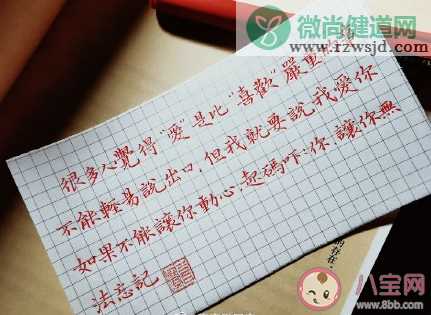 微尚健道网
www.rzwsjd.com
很多人覺得"愛"是比"喜歡"嚴重
不能輕易說出口,但我就要說我愛你
如果不能讓你動心,起碼吓:你,讓你無
法忘記
的存在
八宝网
www.8bb.com